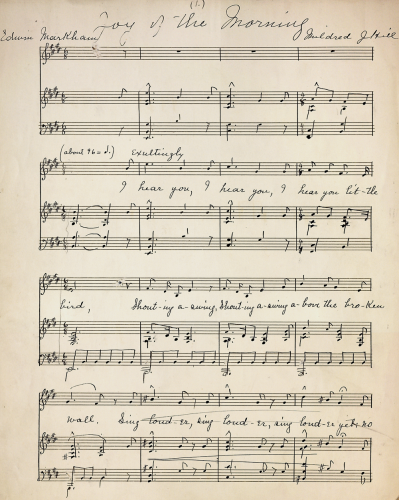 (1.)
Joy of the Morning
Edwin Markham
Mildred J Hill
(about 96 = d.) Exultingly
I hear you, I hear you, I hear you lit-tle
bird, Shout-ing a-swing, Shout-ing a-swing a-bove the bro-ken
wall. Sing loud-er, sing loud-er, sing loud-er yet: no